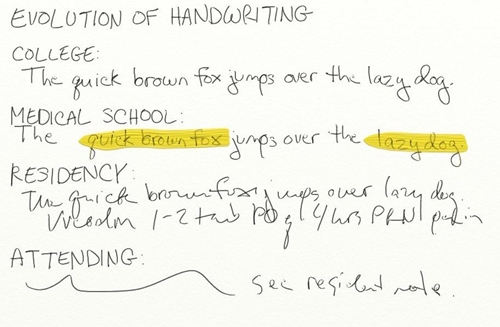 EVOLUTION OF HANDWRITING
COLLEGE:
The quick brown fox jumps over the lazy dog.
MEDICAL SCHOOL:
The quick brown fox jumps over the lazy dog.
RESIDENCY:
The quick brown fox jumps over lazy dog.
Vicodin 1-2 tab PO q 4 hrs PRN pain
ATTENDING:
see resident note.